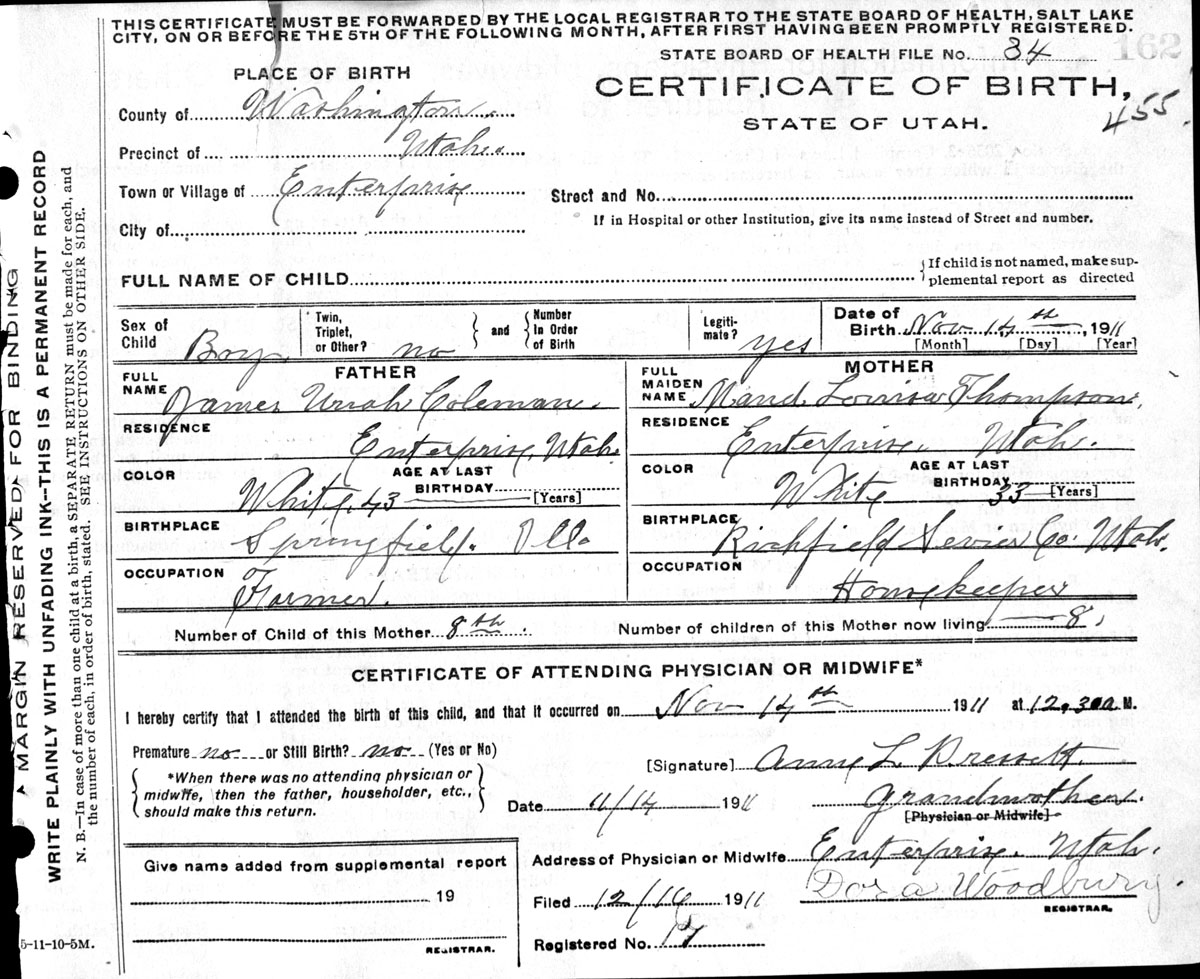 THIS CERTIFICATE MUST BE FORWARDED BY THE LOCAL REGISTRAR TO THE STATE BOARD OF HEALTH, SALT LAKE
CITY, ON OR BEFORE THE 5TH OF THE FOLLOWING MONTH, AFTER FIRST HAVING BEEN PROMPTLY REGISTERED.
STATE BOARD OF HEALTH FILE No. 84
162
PLACE OF BIRTH
CERTIFICATE OF BIRTH,
455
STATE OF UTAH.
County of Washington
Precinct of Utah
Town or Village of Enterprise
Street and No.
City of
If in Hospital or other Institution, give its name instead of Street and number.
FULL NAME OF CHILD
{If child is not named, make sup-
plemental report as directed
Sex of Child Boy
Twin, Triplet, or Other? no } and { Number In Order of Birth
Legiti-mate? yes
Date of Birth Nov 14th, 1911
[Month] [Day] [Year]
FATHER
FULL NAME James Uriah Coleman.
RESIDENCE Enterprise, Utah.
COLOR White. AGE AT LAST BIRTHDAY 43 [Years]
BIRTHPLACE Springfield. Ill.
OCCUPATION Farmer.
MOTHER
FULL MAIDEN NAME Maud Louisa Thompson.
RESIDENCE Enterprise, Utah.
COLOR White AGE AT LAST BIRTHDAY 33 [Years]
BIRTHPLACE Richfield Sevier Co. Utah.
OCCUPATION Housekeeper
Number of Child of this Mother 8th
Number of children of this Mother now living 8,
CERTIFICATE OF ATTENDING PHYSICIAN OR MIDWIFE*
I hereby certify that I attended the birth of this child, and that it occurred on Nov 14th 1911 at 12,30a M.
Premature no or Still Birth? no (Yes or No)
{*When there was no attending physician or
midwife, then the father, householder, etc.,
should make this return.}
[Signature] L
Date 11/14 1911
grandmother.
[Physician or Midwife]
Address of Physician or Midwife Enterprise. Utah.
Give name added from supplemental report
19
REGISTRAR.
Filed 12/16 1911
Dora Woodbury.
REGISTRAR.
Registered No. 17
5-11-10-5M.
MARGIN RESERVED FOR BINDING
WRITE PLAINLY WITH UNFADING INK--THIS IS A PERMANENT RECORD
N. B.—In case of more than one child at a birth, a SEPARATE RETURN must be made for each, and
the number of each, in order of birth, stated. SEE INSTRUCTIONS ON OTHER SIDE.